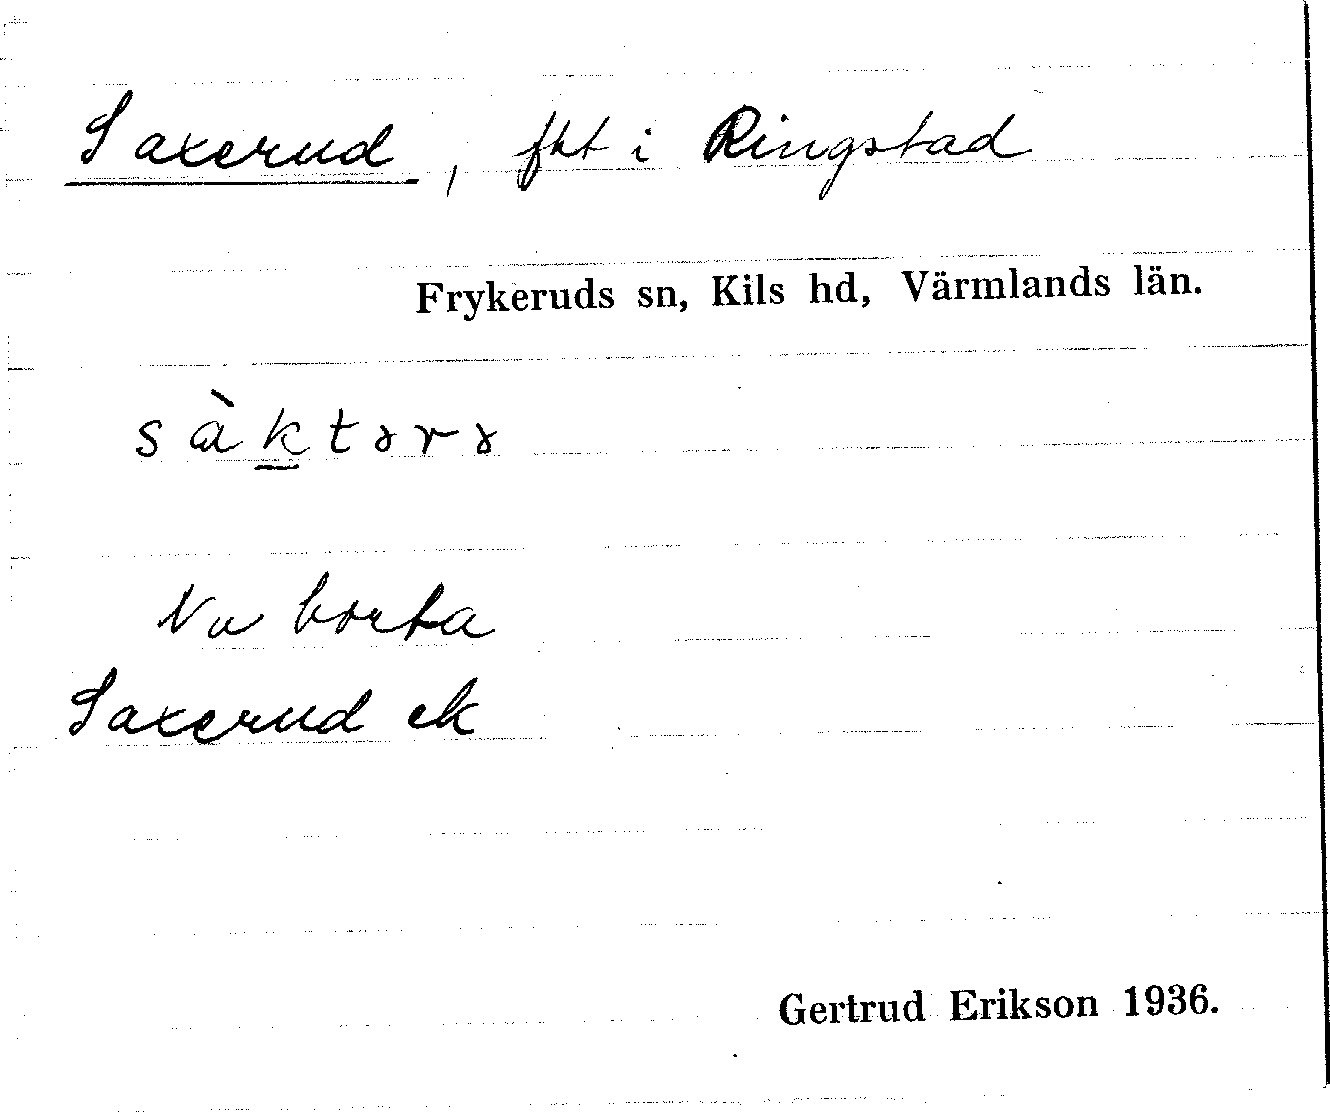 Saxerud, fkt i Ringstad
Frykeruds sn, Kils hd, Värmlands län.
Nu borta
Saxerud ek
Gertrud Erikson 1936.